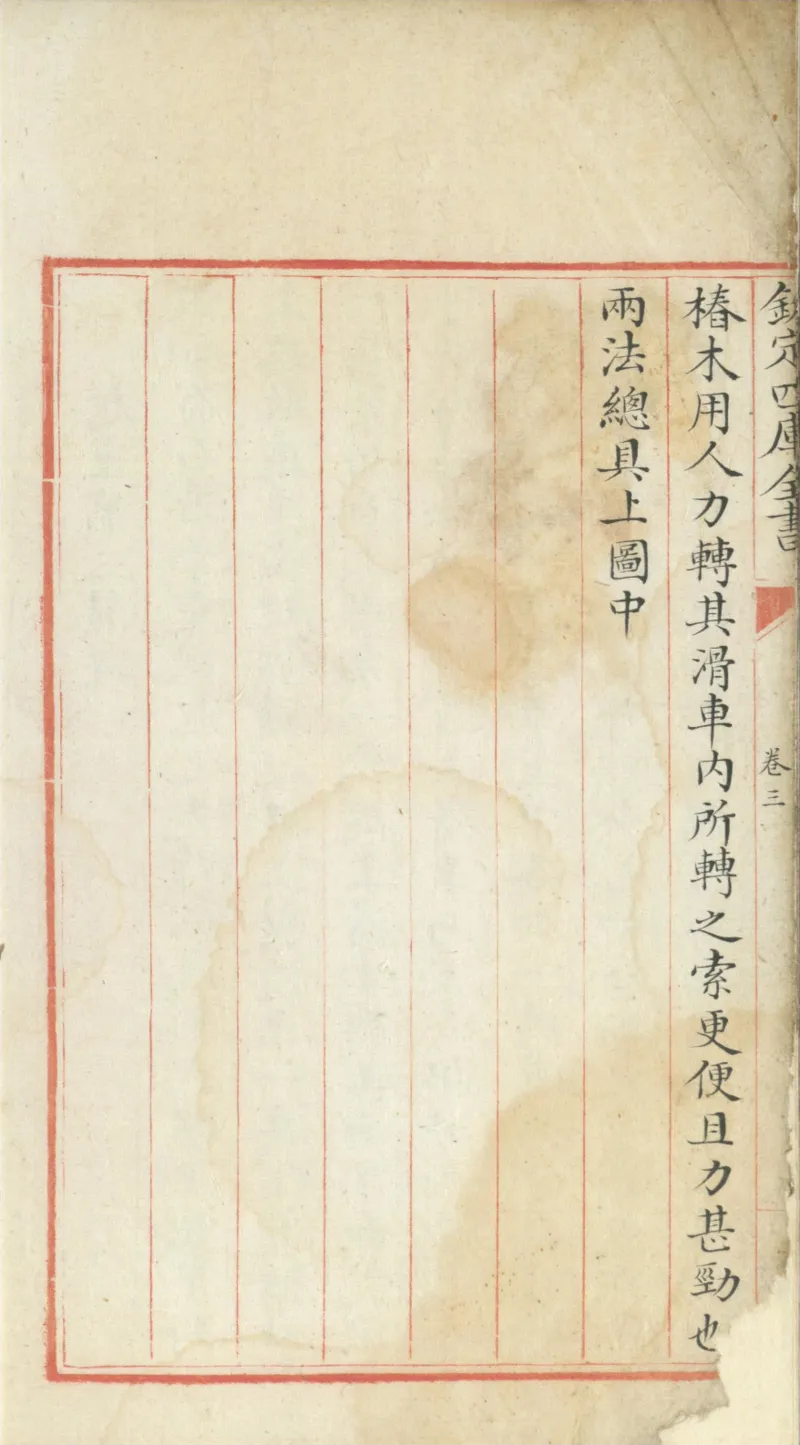 欽定四庫全書
卷三
樁木用人力轉其滑車内所轉之索更便且力甚勁也
兩法總具上圖中